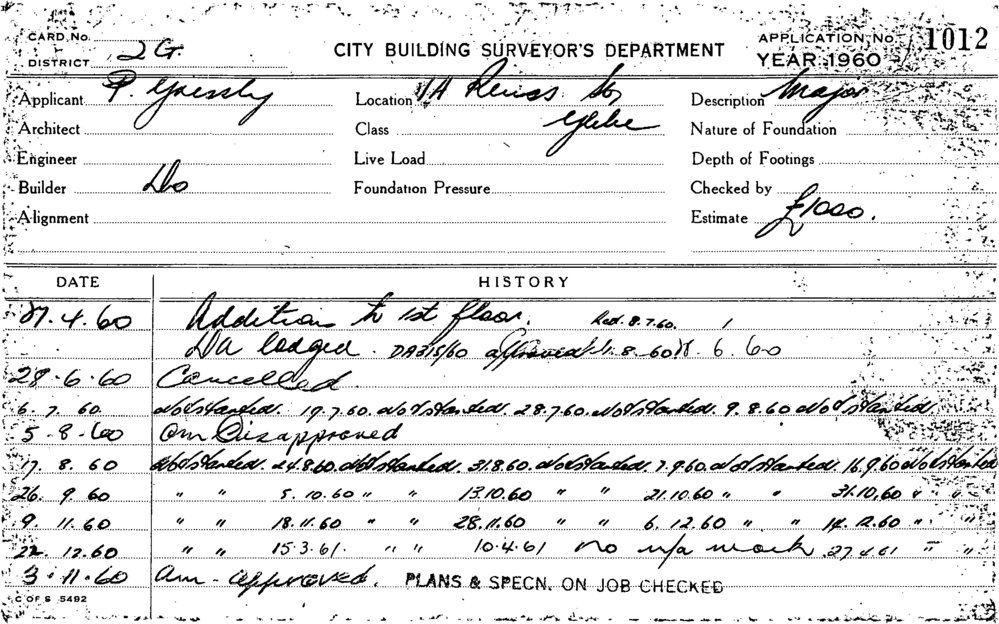 CARD No.
DISTRICT 2G.
CITY BUILDING SURVEYOR'S DEPARTMENT
APPLICATION No. 1012
YEAR 1960
Applicant P. Location 1A Reuss St, Description Major
Glebe
Architect Class Nature of Foundation
Engineer Live Load Depth of Footings
Builder Do Foundation Pressure Checked by
Alignment Estimate £1000.
DATE HISTORY
4.60 Addition to 1st floor. 8.7.60.
DA lodged. DA315/60 approved 8-60 6.60
28.6.60 Cancelled.
6. 7. 60 Not started. 19.7.60. Not started. 28.7.60. Not started. 9.8.60 Not started.
5-8-60 Am Disapproved
17. 8. 60 Not started. 24.8.60. Not started. 31.8.60. Not started. 7.9.60. Not started. 16.9.60 Not started
26. 9. 60 " " 5.10.60 " " 13.10.60 " " 21.10.60 " " 31.10.60 " "
9. 11. 60 " " 18.11.60 " " 28.11.60 " " 6.12.60 " " 14.12.60 " "
22. 12. 60 " " 15.3.61. " " 10.4.61 no n/a work. 27.4.61 " "
3.11.60 Am - approved. PLANS & SPECN. ON JOB CHECKED
C OF S 5492